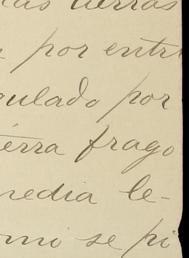 tierras
por entr
gulado por
ierra frago
media le-
omo se pi